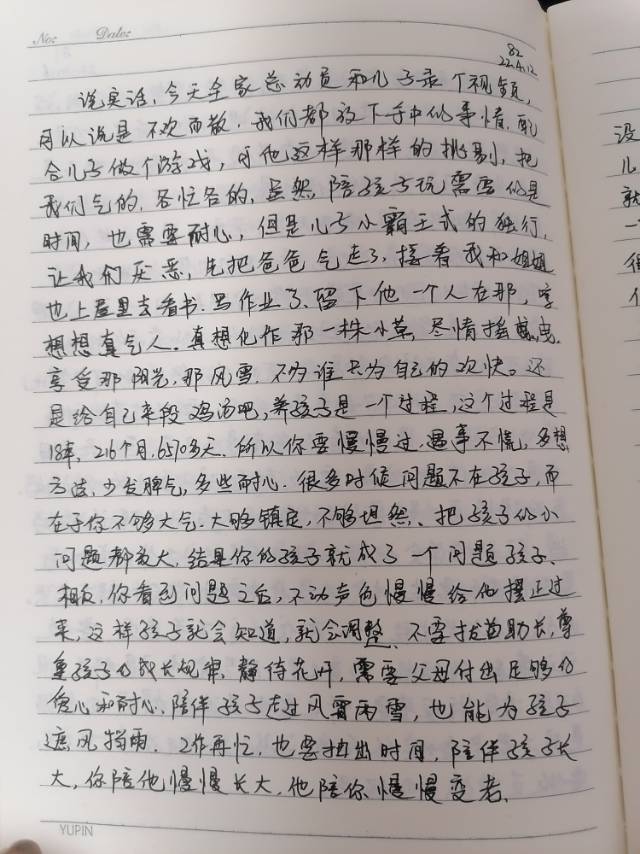 No: Date:
82
22.4.12
说实话,今天全家总动员和儿子录个视频,
可以说是不欢而散.我们都放下手中的事情.配
合儿子做个游戏,可他这样那样的挑剔,把
我们气的,各忙各的,虽然陪孩子玩需要的是
时间,也需要耐心,但是儿子小霸王式的独行,
让我们厌恶,先把爸爸气走了,接着我和姐姐
也上屋里去看书.写作业了.留下他一个人在那,哼
想想真气人.真想化作那一株小草,尽情摇曳.
享受那阳光,那风雪.不为谁只为自己的欢快。还
是给自己来段鸡汤吧,养孩子是一个过程,这个过程是
18年,216个月.6570多天.所以你要慢慢过.遇事不慌,多想
方法,少发脾气,多些耐心.很多时候问题不在孩子,而
在于你不够大气.大够镇定,不够坦然、把孩子的小
问题都放大,结果你的孩子就成了一个问题孩子、
相反,你看到问题之后,不动声色慢慢给他摆正过
来,这样孩子就会知道,就会调整.不要拔苗助长,尊
重孩子的成长规律,静待花开,需要父母付出足够的
信心和耐心.陪伴孩子走过风霜雨雪,也能为孩子
遮风挡雨.工作再忙,也要抽出时间,陪伴孩子长
大,你陪他慢慢长大,他陪你慢慢变老、
YUPIN
没
儿
就
一
很